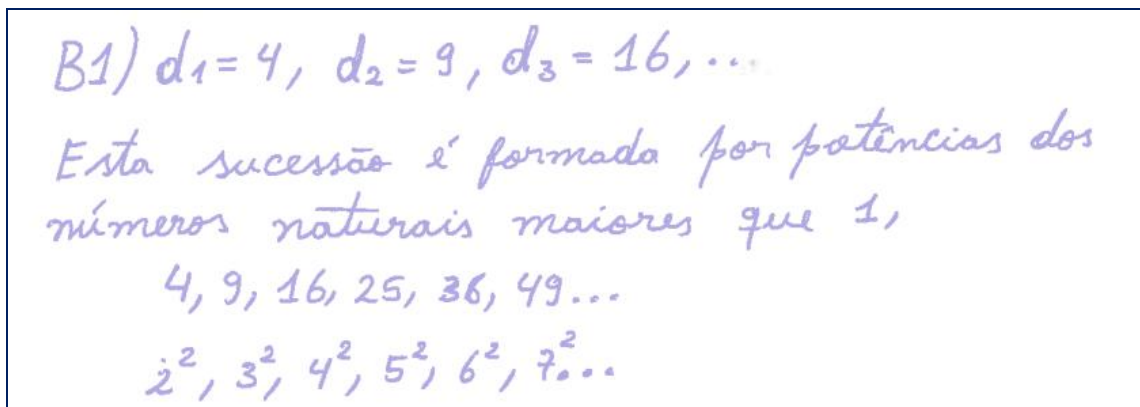 B1) d₁ = 4, d₂ = 9, d₃ = 16, ...
Esta sucessão é formada por potências dos
números naturais maiores que 1,
4, 9, 16, 25, 36, 49...
2², 3², 4², 5², 6², 7²...